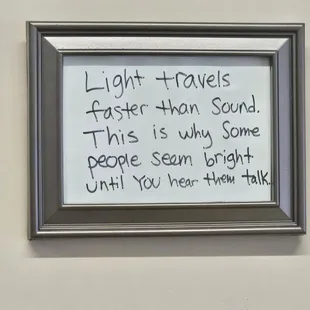 Light travels
faster than Sound.
This is why Some
people seem bright
until You hear them talk.